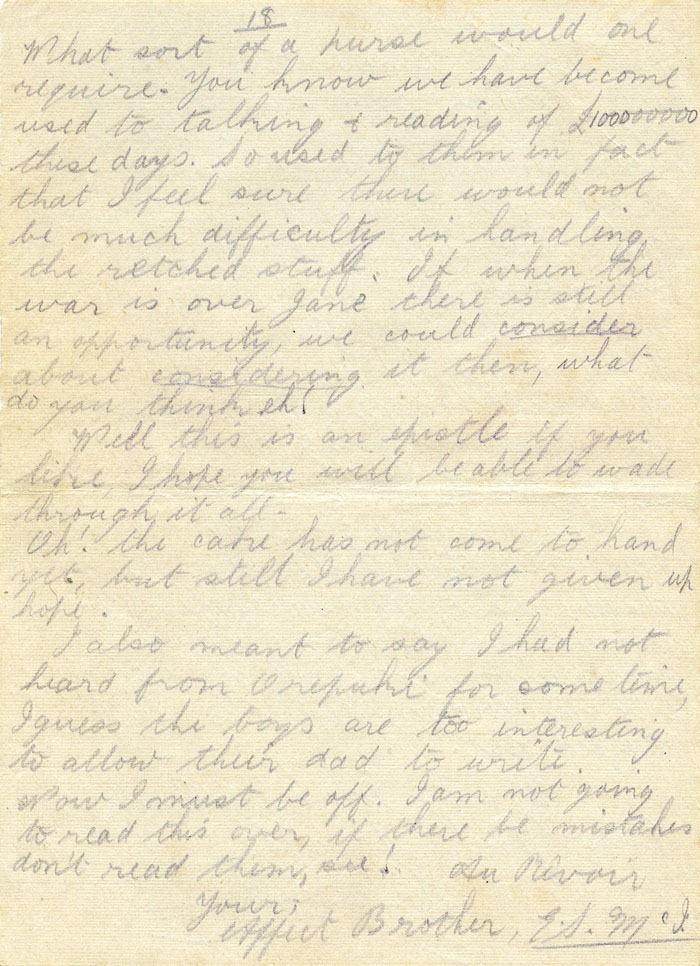 18
What sort of a purse would one
require. You know we have become
used to talking & reading of £100000000
these days. So used to them in fact
that I feel sure there would not
be much difficulty in handling
the retched stuff. If when the
war is over Jane there is still
an opportunity, we could consider
about considering it then, what
do you think eh!
Well this is an epistle if you
like, I hope you will be able to wade
through it all-
Oh! the cake has not come to hand
yet, but still I have not given up
hope.
I also meant to say I had not
heard from Orepuki for some time,
I guess the boys are too interesting
to allow their dad to write.
Now I must be off. I am not going
to read this over, if there be mistakes
don't read them, see! Au Revoir
Your
Affect Brother, E.S. McI.